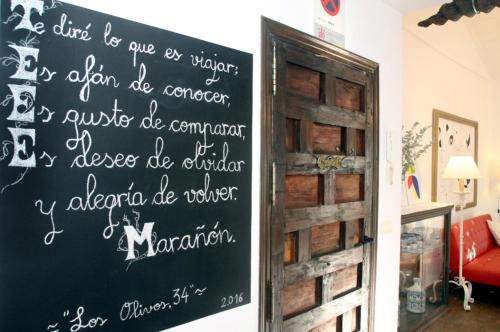 Te diré lo que es viajar;
Es afán de conocer,
Es gusto de comparar,
Es deseo de olvidar
y alegría de volver.
Marañón.
~ "Los Olivos, 34" ~ 2016